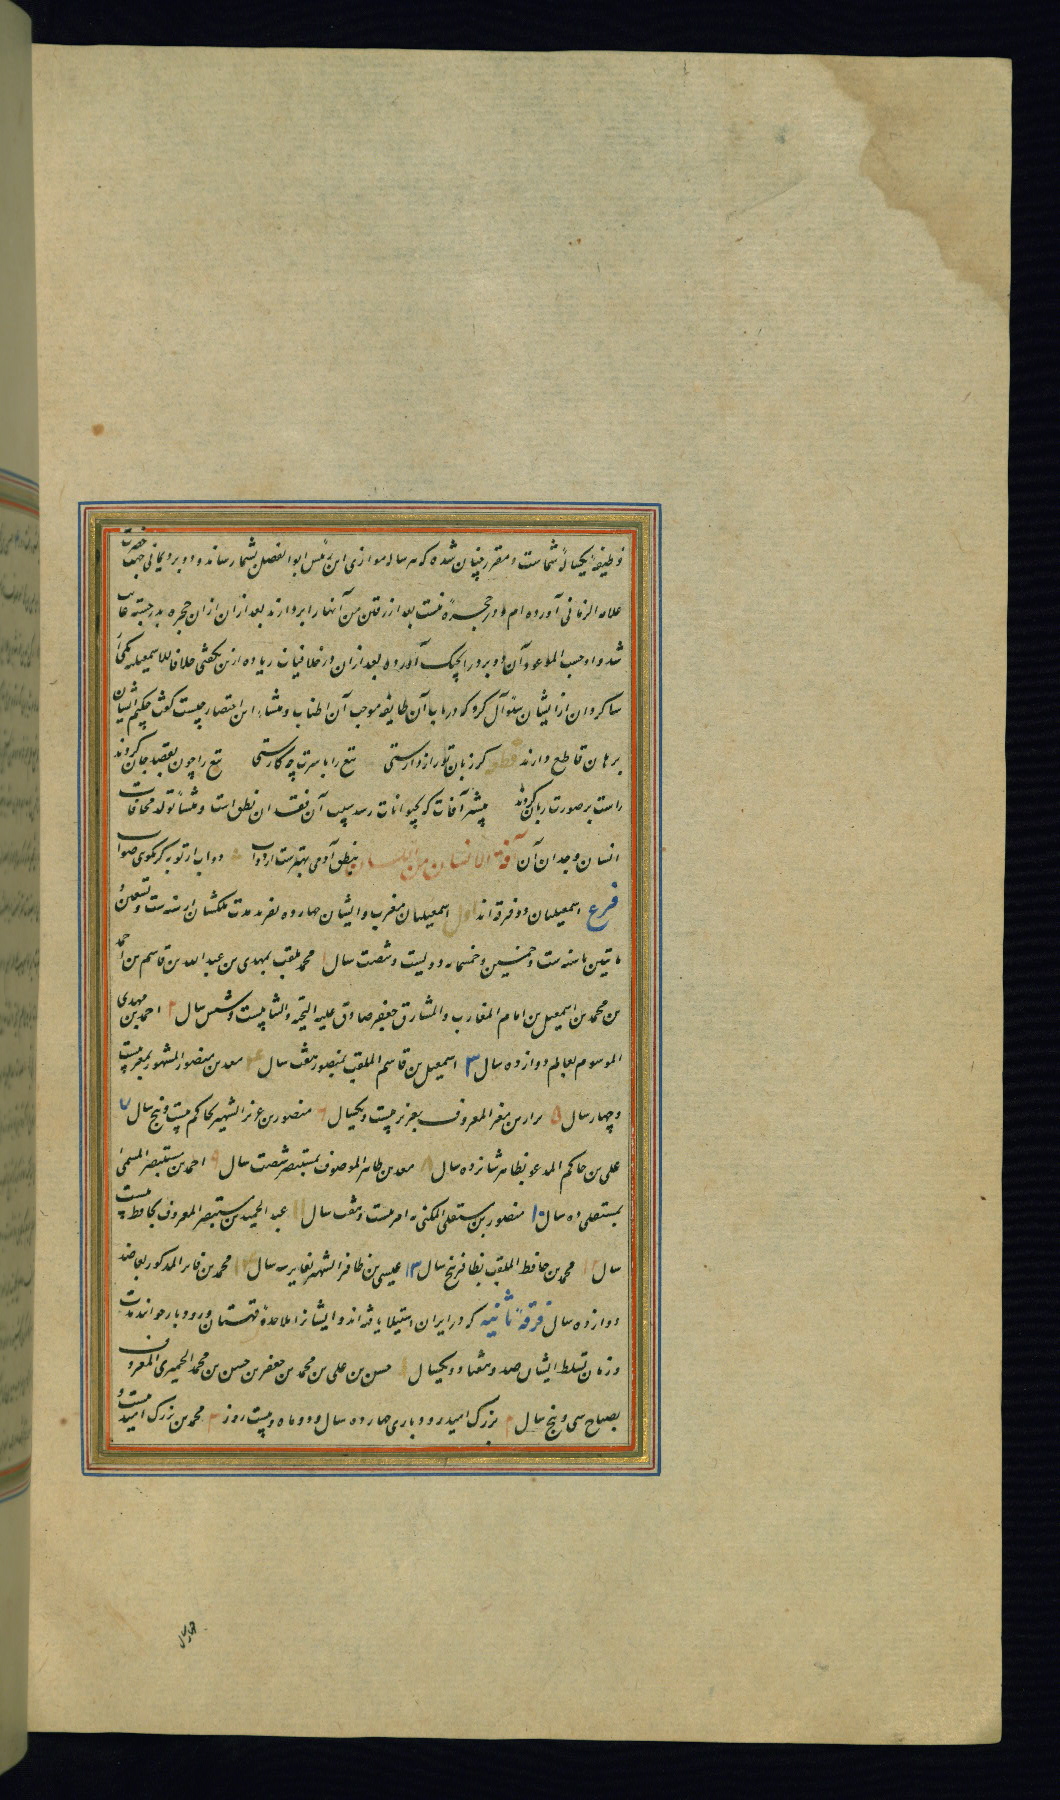 وظیفه یکساله شماست و مقرر چنان شده که هر ساله موازی این بس ابوالفضل بشمار رساند و دو برد یمانی جهت حضرت
علاء الزمانی آورده ام و در حجره منست بعد از رفتن من آنها را بردارند بعد ازان ازان حجره بدر جسته غایب
شد و او حسب الموعود آن دو برد را
از ایشان سئوال کرد که در باب آن طایفه موجب آن اطناب و منشاء این اختصار چیست گفت چکنم ایشان
برهان قاطع دارند قطعه گر زبان تو رازدارستی تیغ را با سرت چه کارستی تیغ را چون بقصد جان کردند
راست بر صورت زبان کردند بیشتر آفات که بحیوانات رسد سبب آن فقدان نطق است و منشأ تولد مخافات
انسان وجدان آن آفة الانسان من اللسان بنطق آدمی بهترست از دواب دواب از تو به گر نگوی صواب
فرع اسمعیلیان دو فرقه اند اول اسمعیلیان مغرب و ایشان چهارده نفرند مدت ملکشان از سنه ست و تسعین و
ماتین تا سنه ست و خمسین و خمسمایه دویست و شصت سال ۱ محمد ملقب بمهدی بن عبد الله بن قاسم بن احمد
بن محمد بن اسمعیل بن امام المغارب و المشارق جعفر صادق علیه التحیه و الثنا بیست و شش سال ۲ احمد بن مهدی
الموسوم بقایم دوازده سال ۳ اسمعیل بن قاسم الملقب بمنصور هفت سال ۴ معد بن منصور المشهور بمعز بیست
و چهار سال ۵ نزار بن معز المعروف بعزیز بیست و یکسال ۶ منصور بن عزیز الشهیر بحاکم بیست و پنج سال ۷
علی بن حاکم المدعو بظاهر شانزده سال ۸ معد بن طاهر الموصوف بمستنصر شصت سال ۹ احمد بن مستنصر المسمی
بمستعلی ده سال ۱۰ منصور بن مستعلی المکنی به امر بیست و هفت سال ۱۱ عبد الحمید بن مستنصر المعروف بحافظ بیست
سال ۱۲ محمد بن حافظ الملقب بظافر پنج سال ۱۳ عیسی بن ظافر الشهیر بفایز سه سال ۱۴ محمد بن فایز المذکور بعاضد
دوازده سال فرقهٔ ثانیه که در ایران استیلا یافته اند و ایشانرا ملاحدهٔ قهستان و رودبار خوانند مدت
و زمان تسلط ایشان صد و هفتاد و یکسال ۱ حسن بن علی بن محمد بن جعفر بن حسن بن محمد الحمیری المعروف
بصباح سی و پنج سال ۲ بزرگ امید رودباری چهارده سال و دو ماه و بیست روز ۳ محمد بن بزرگ امید بیست و
چهار سال